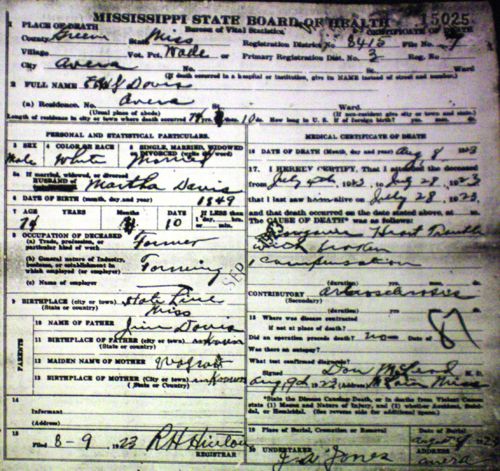 MISSISSIPPI STATE BOARD OF HEALTH 15025
Bureau of Vital Statistics CERTIFICATE OF DEATH
1 PLACE OF DEATH
County Greene State Miss Registration District No. 8415 File No. 9
Village Vot. Pct. Wade or Primary Registration Dist. No. 3 Reg. No.
City Avera
(If death occurred in a hospital or institution, give its NAME instead of street and number.)
2 FULL NAME Davis
(a) Residence. No. Avera St. Ward.
(Usual place of abode) (If non-resident give city or town and state)
Length of residence in city or town where death occurred 10 How long in U. S. if of foreign birth? yrs. mos. ds.
PERSONAL AND STATISTICAL PARTICULARS.
MEDICAL CERTIFICATE OF DEATH.
3 SEX Male
4 COLOR OR RACE White
5 SINGLE, MARRIED, WIDOWED DIVORCED (write the word) Married
5a If married, widowed, or divorced HUSBAND of Martha Davis
6 DATE OF BIRTH (month, day and year) 1849
7 AGE 74 Months Days 10 If LESS than
8 OCCUPATION OF DECEASED
(a) Trade, profession, or particular kind of work Farmer
(b) General nature of Industry, business, or establishment in which employed (or employer) Farming
(c) Name of employer
9 BIRTHPLACE (city or town) State Line
(State or country) Miss
PARENTS
10 NAME OF FATHER Jim Davis
11 BIRTHPLACE OF FATHER (city or town) unknown
(State or country)
12 MAIDEN NAME OF MOTHER
13 BIRTHPLACE OF MOTHER (City or town) unknown
(State or country)
14
Informant
(Address)
15
Filed 8-9 1923 R H
REGISTRAR
16 DATE OF DEATH (month, day and year) Aug 8, 1923
17. I HEREBY CERTIFY, That I attended the deceased
from July 1923 to July 28 1923
that I last saw him alive on July 28 1923
and that death occurred on the date stated above, at m.
The CAUSE OF DEATH* was as follows:
Heart Trouble
with broken
compensation
SEP 1923
(duration) yrs. mos. ds.
CONTRIBUTORY
(Secondary) (duration) yrs. mos. ds.
18 Where was disease contracted
if not at place of death?
Did an operation precede death? no Date of
Was there an autopsy?
What test confirmed diagnosis?
(Signed) Don McLeod M. D.
Aug 9th 1923 (Address) McLain Miss
*State the Disease Causing Death, or in deaths from Violent Causes state (1) Means and Nature of Injury, and (2) whether Accidental, Suicidal, or Homicidal. (See reverse side for additional space)
19 Place of Burial, Cremation or Removal Date of Burial
20 UNDERTAKER J. W. Jones
ADDRESS Avera